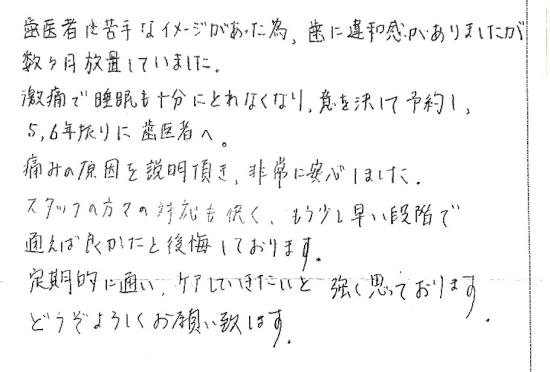 歯医者は苦手なイメージがあった為、歯に違和感がありましたが
数ヶ月放置していました。
激痛で睡眠も十分にとれなくなり、意を決して予約し、
5,6年振りに歯医者へ。
痛みの原因を説明頂き、非常に安心しました。
スタッフの方々の対応も快く、もう少し早い段階で
通えば良かったと後悔しております。
定期的に通い、ケアしていきたいと強く思っております。
どうぞよろしくお願い致します。